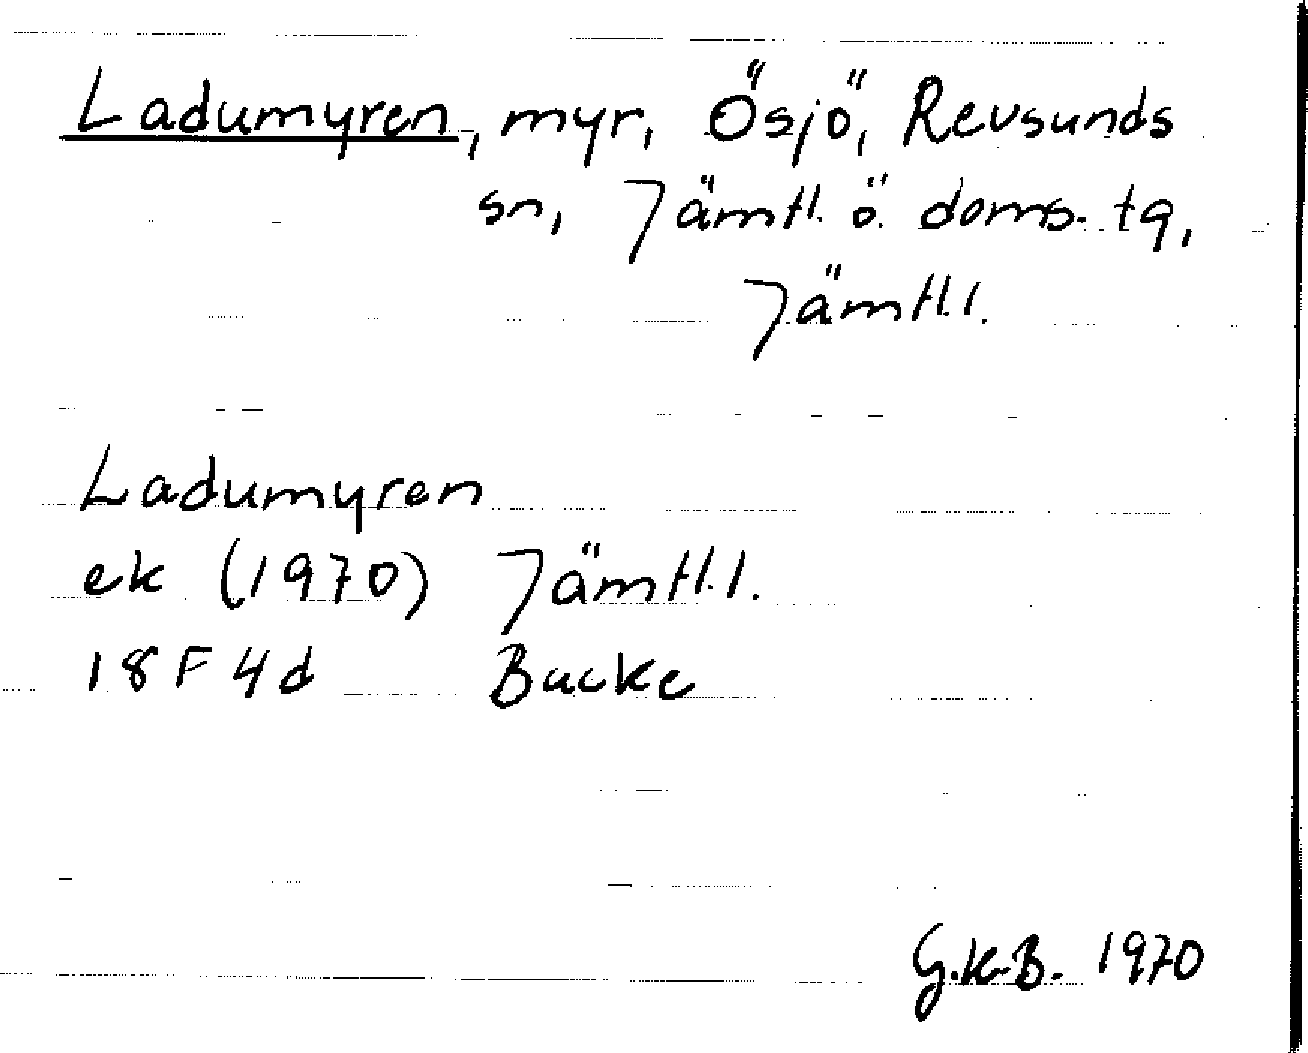 Ladumyren, myr, Ösjö, Revsunds
sn, Jämtl. ö. doms. tg,
Jämtl.l.
Ladumyren
ek (1970) Jämtl.l.
18F4d Backe
G.K.B. 1970